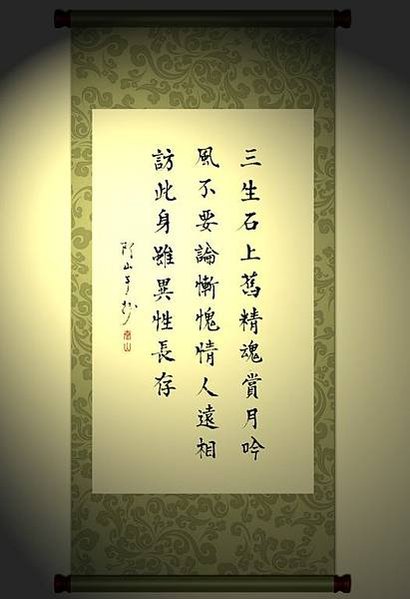 三生石上舊精魂賞月吟
風不要論慚愧情人遠相
訪此身雖異性長存